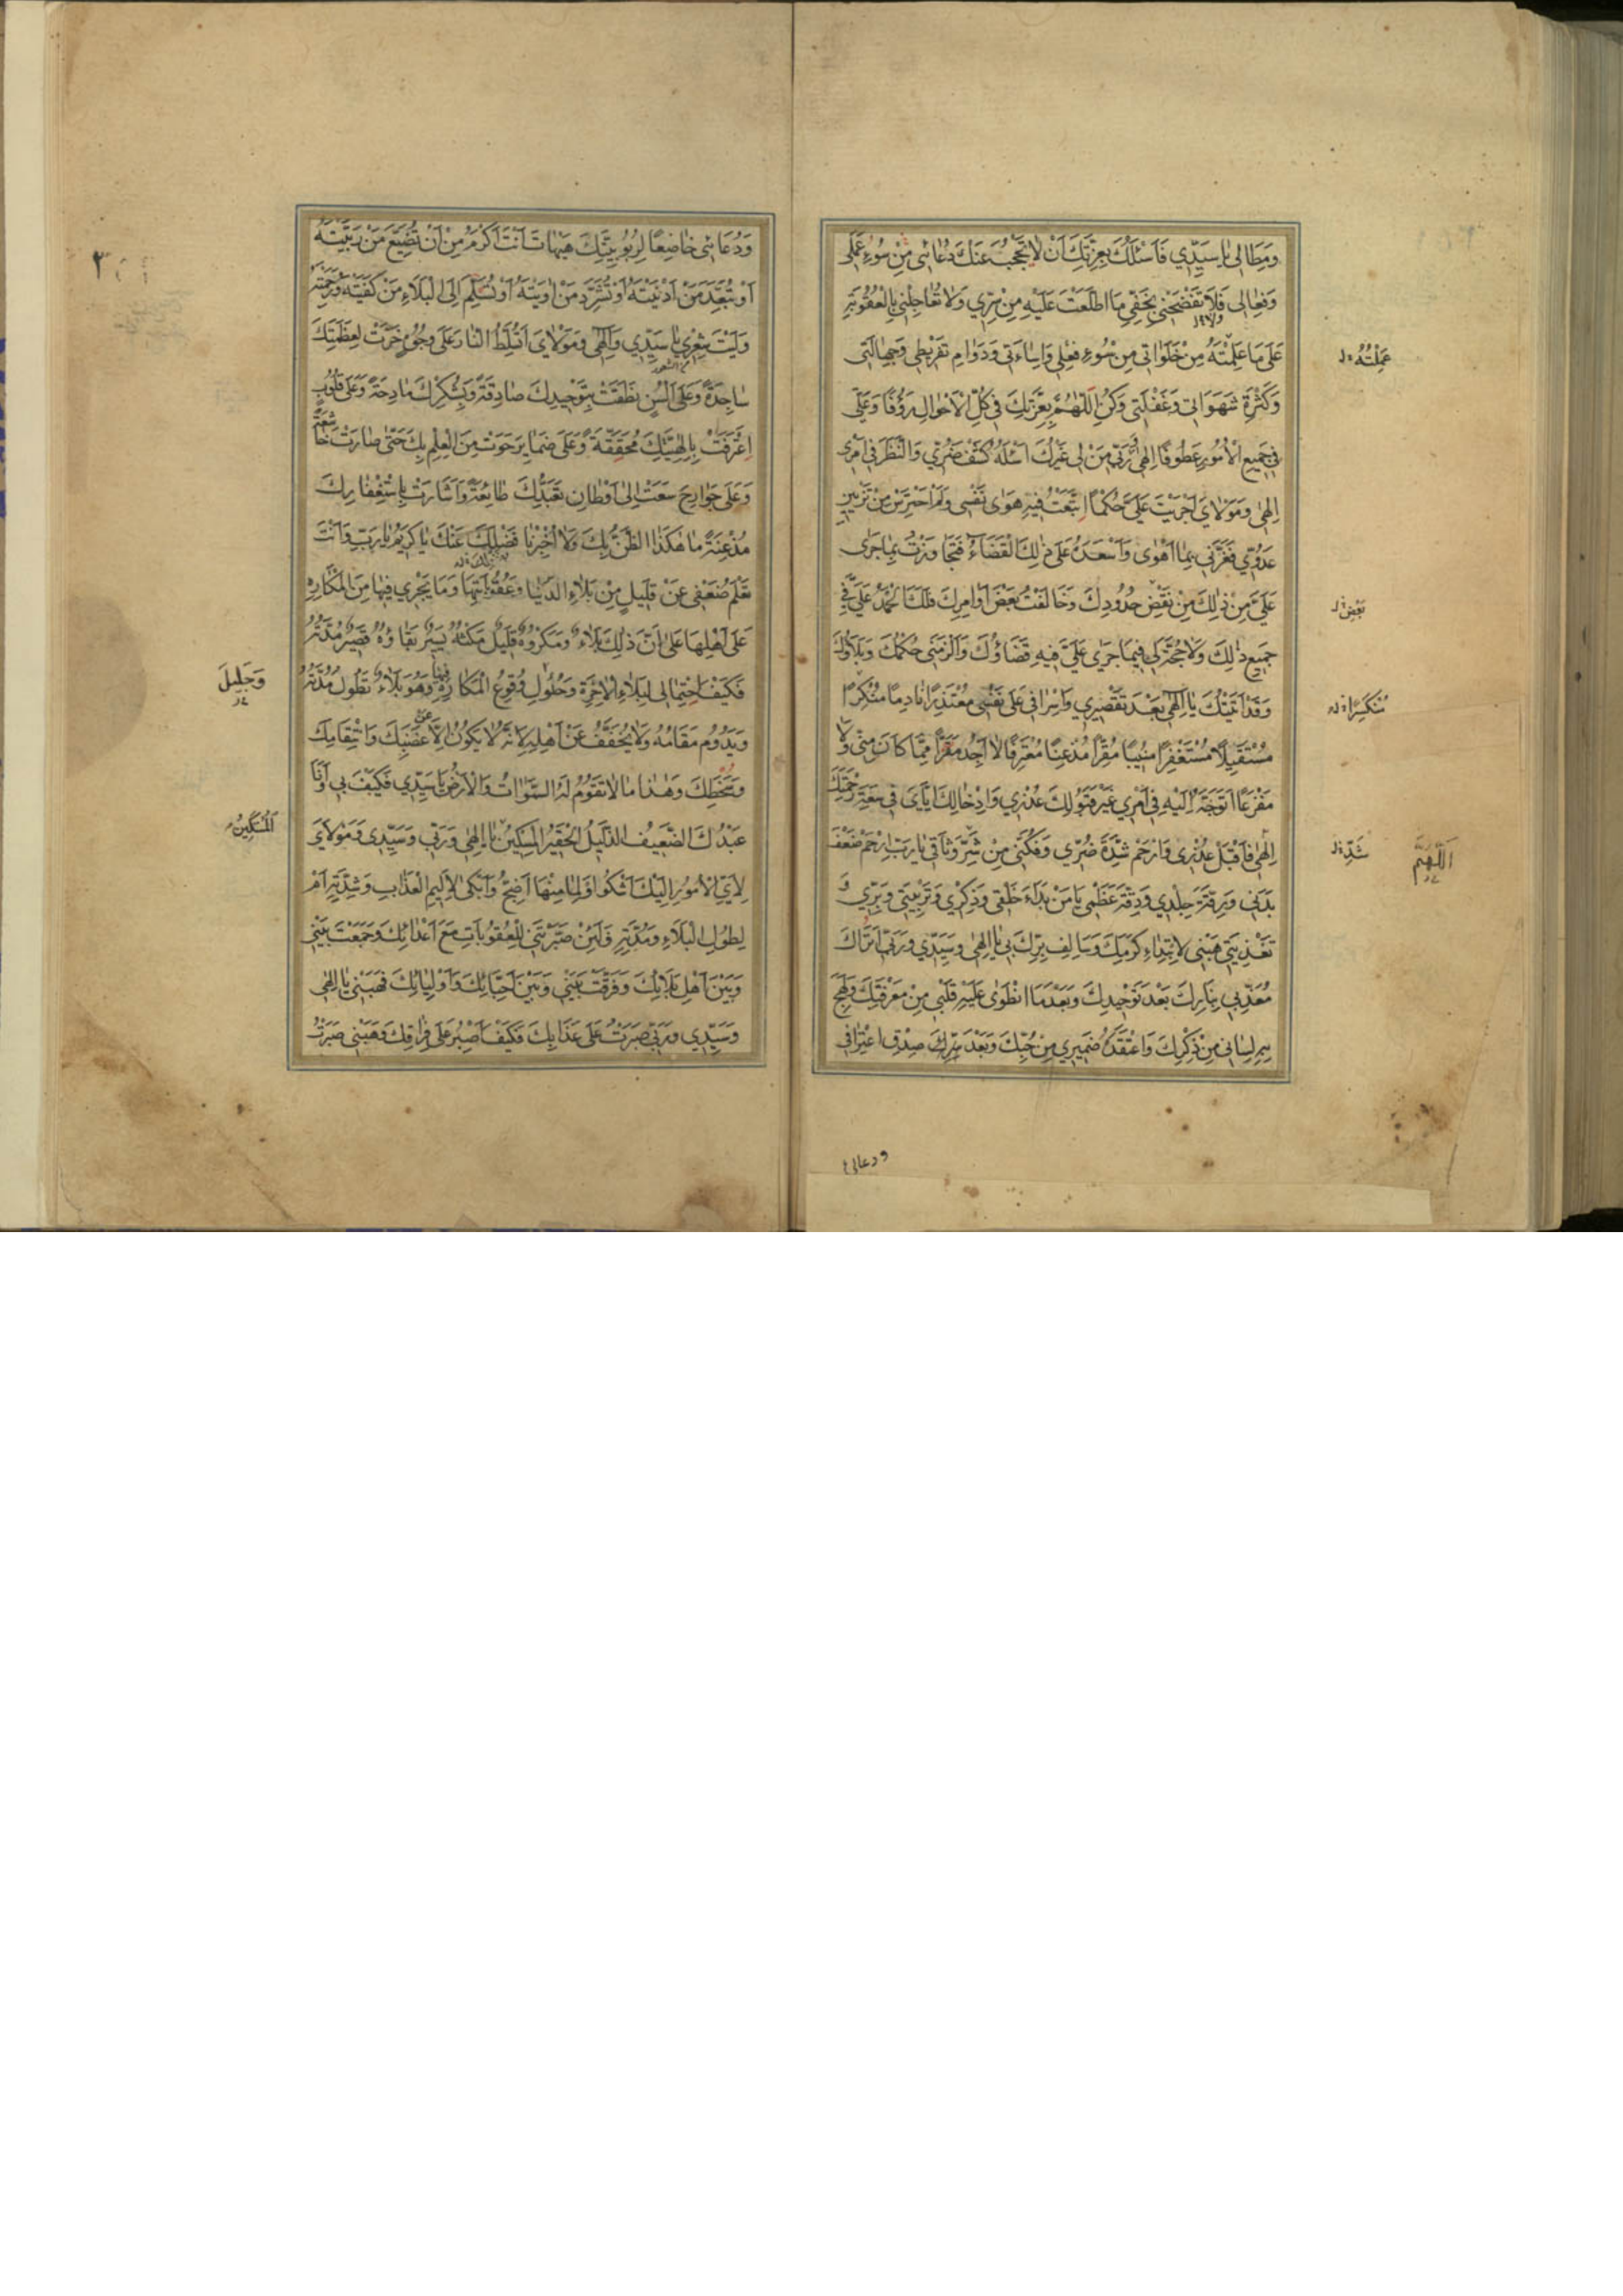 وَمِطَالِی يَا سَيِّدِي فَاَسْئَلُكَ بِعِزَّتِكَ اَنْ لَا يَحْجُبَ عَنْكَ دُعَائِی مِنْ سُوءِ عَمَلِی
وَفِعَالِی فَلَا تَفْضَحْنِی بِخَفِیِّ مَا اطَّلَعْتَ عَلَيْهِ مِنْ سِرِّي وَلَا تُعَاجِلْنِی بِالْعُقُوبَةِ
عَلَی مَا عَلِمْتَهُ مِنْ خَلَوَاتِی مِنْ سُوءِ فِعْلِی وَاِسَاءَتِی وَدَوَامِ تَفْرِيطِی وَجَهَالَتِی
عَمِلْتُهُ
وَكَثْرَةِ شَهَوَاتِی وَغَفْلَتِی وَكُنِ اللّٰهُمَّ بِعِزَّتِكَ فِی كُلِّ الْاَحْوَالِ رَؤُفًا وَعَلَیَّ
فِی جَمِيعِ الْاُمُورِ عَطُوفًا اِلٰهِی وَرَبِّی مَنْ لِی غَيْرُكَ اَسْئَلُهُ كَشْفَ ضُرِّي وَالنَّظَرَ فِی اَمْرِی
اِلٰهِی وَمَوْلَايَ اَجْرَيْتَ عَلَیَّ حُكْمًا اِتَّبَعْتُ فِيهِ هَوٰی نَفْسِی وَلَمْ اَحْتَرِسْ مِنْ تَزْيِينِ
عَدُوِّي فَغَرَّنِی بِمَا اَهْوٰی وَاَسْعَدَهُ عَلَی ذٰلِكَ الْقَضَاءُ فَتَجَاوَزْتُ بِمَا جَرٰی
عَلَیَّ مِنْ ذٰلِكَ مِنْ نَقْضِ حُدُودِكَ وَخَالَفْتُ بَعْضَ اَوَامِرِكَ فَلَكَ الْحَمْدُ عَلَیَّ فِی
بَعْضَ
جَمِيعِ ذٰلِكَ وَلَا حُجَّةَ لِی فِيمَا جَرٰی عَلَیَّ فِيهِ قَضَاؤُكَ وَاَلْزَمَنِی حُكْمُكَ وَبَلَاؤُكَ
وَقَدْ اَتَيْتُكَ يَا اِلٰهِی بَعْدَ تَقْصِيرِي وَاِسْرَافِی عَلَی نَفْسِی مُعْتَذِرًا نَادِمًا مُنْكَرًا
مُنْكَسِرًا
مُسْتَقِيلًا مُسْتَغْفِرًا مُنِيبًا مُقِرًّا مُذْعِنًا مُعْتَرِفًا لَا اَجِدُ مَفَرًّا مِمَّا كَانَ مِنِّی وَلَا
مَفْزَعًا اَتَوَجَّهُ اِلَيْهِ فِی اَمْرِي غَيْرَ قَبُولِكَ عُذْرِي وَاِدْخَالِكَ اِيَّايَ فِی سَعَةِ رَحْمَتِكَ
اِلٰهِی فَاقْبَلْ عُذْرِی وَارْحَمْ شِدَّةَ ضُرِّي وَفُكَّنِی مِنْ شَرِّ وَثَاقِی يَا رَبِّ ارْحَمْ ضَعْفَ
شَدِّ
اَللّٰهُمَّ
بَدَنِی وَرِقَّةَ جِلْدِي وَدِقَّةَ عَظْمِی يَا مَنْ بَدَاَءَ خَلْقِی وَذِكْرِي وَتَرْبِيَتِی وَبِرِّي وَ
تَغْذِيَتِی هَبْنِی لِابْتِدَاءِ كَرَمِكَ وَسَالِفِ بِرِّكَ بِی يَا اِلٰهِی وَسَيِّدِي وَرَبِّی اَتُرَاكَ
مُعَذِّبِی بِنَارِكَ بَعْدَ تَوْحِيدِكَ وَبَعْدَمَا انْطَوٰی عَلَيْهِ قَلْبِی مِنْ مَعْرِفَتِكَ وَلَهِجَ
بِهِ لِسَانِی مِنْ ذِكْرِكَ وَاعْتَقَدَهُ ضَمِيرِي مِنْ حُبِّكَ وَبَعْدَ صِدْقِ اعْتِرَافِی
ودعائی
٢
وَدُعَائِی خَاضِعًا لِرُبُوبِيَّتِكَ هَيْهَاتَ اَنْتَ اَكْرَمُ مِنْ اَنْ تُضَيِّعَ مَنْ رَبَّيْتَهُ
اَوْ تُبَعِّدَ مَنْ اَدْنَيْتَهُ اَوْ تُشَرِّدَ مَنْ اٰوَيْتَهُ اَوْ تُسَلِّمَ اِلَی الْبَلَاءِ مَنْ كَفَيْتَهُ وَرَحِمْتَهُ
وَلَيْتَ شِعْرِي يَا سَيِّدِي وَاِلٰهِی وَمَوْلَايَ اَتُسَلِّطُ النَّارَ عَلَی وُجُوهٍ خَرَّتْ لِعَظَمَتِكَ
سَاجِدَةً وَعَلَی اَلْسُنٍ نَطَقَتْ بِتَوْحِيدِكَ صَادِقَةً وَبِشُكْرِكَ مَادِحَةً وَعَلَی قُلُوبٍ
اِعْتَرَفَتْ بِاِلٰهِيَّتِكَ مُحَقِّقَةً وَعَلَی ضَمَايِرَ حَوَتْ مِنَ الْعِلْمِ بِكَ حَتّٰی صَارَتْ خَاشِعَةً
وَعَلَی جَوَارِحَ سَعَتْ اِلٰی اَوْطَانِ تَعَبُّدِكَ طَائِعَةً وَاَشَارَتْ بِاِسْتِغْفَارِكَ
مُذْعِنَةً مَا هٰكَذَا الظَّنُّ بِكَ وَلَا اُخْبِرْنَا بِفَضْلِكَ عَنْكَ يَا كَرِيمُ يَا رَبِّ وَاَنْتَ
تَعْلَمُ ضَعْفِی عَنْ قَلِيلٍ مِنْ بَلَاءِ الدُّنْيَا وَعُقُوبَاتِهَا وَمَا يَجْرِي فِيهَا مِنَ الْمَكَارِهِ
عَلَی اَهْلِهَا عَلٰی اَنَّ ذٰلِكَ بَلَاءٌ وَمَكْرُوهٌ قَلِيلٌ مَكْثُهُ يَسِيرٌ بَقَاؤُهُ قَصِيرٌ مُدَّتُهُ
فَكَيْفَ احْتِمَالِی لِبَلَاءِ الْاٰخِرَةِ وَحُلُولِ وُقُوعِ الْمَكَارِهِ فِيهَا وَهُوَ بَلَاءٌ تَطُولُ مُدَّتُهُ
وَجَلِيلَ
وَيَدُومُ مَقَامُهُ وَلَا يُخَفَّفُ عَنْ اَهْلِهِ لِاَنَّهُ لَا يَكُونُ اِلَّا عَنْ غَضَبِكَ وَانْتِقَامِكَ
وَسَخَطِكَ وَهٰذَا مَا لَا تَقُومُ لَهُ السَّمٰوَاتُ وَالْاَرْضُ يَا سَيِّدِي فَكَيْفَ بِی وَاَنَا
عَبْدُكَ الضَّعِيفُ الذَّلِيلُ الْحَقِيرُ الْمِسْكِينُ يَا اِلٰهِی وَرَبِّی وَسَيِّدِی وَمَوْلَايَ
اَلْمُسْتَكِينُ
لِاَيِّ الْاُمُورِ اِلَيْكَ اَشْكُو وَلِمَا مِنْهَا اَضِجُّ وَاَبْكِی لِاَلِيمِ الْعَذَابِ وَشِدَّتِهِ اَمْ
لِطُولِ الْبَلَاءِ وَمُدَّتِهِ فَلَئِنْ صَيَّرْتَنِی لِلْعُقُوبَاتِ مَعَ اَعْدَائِكَ وَجَمَعْتَ بَيْنِی
وَبَيْنَ اَهْلِ بَلَائِكَ وَفَرَّقْتَ بَيْنِی وَبَيْنَ اَحِبَّائِكَ وَاَوْلِيَائِكَ فَهَبْنِی يَا اِلٰهِی
وَسَيِّدِي وَرَبِّی صَبَرْتُ عَلَی عَذَابِكَ فَكَيْفَ اَصْبِرُ عَلَی فِرَاقِكَ وَهَبْنِی صَبَرْتُ